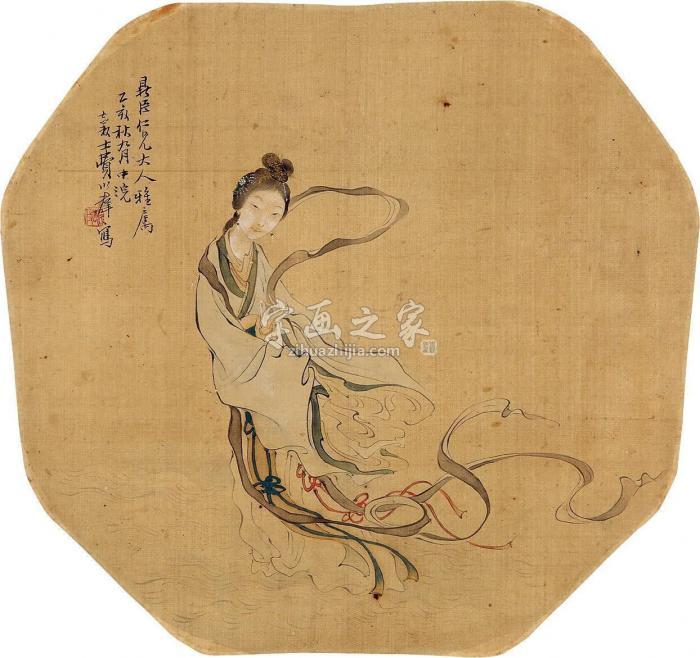 鼎臣仁兄大人雅属
乙亥秋九月中浣
穀士費以羣寫
字画之家
zihuazhijia.com